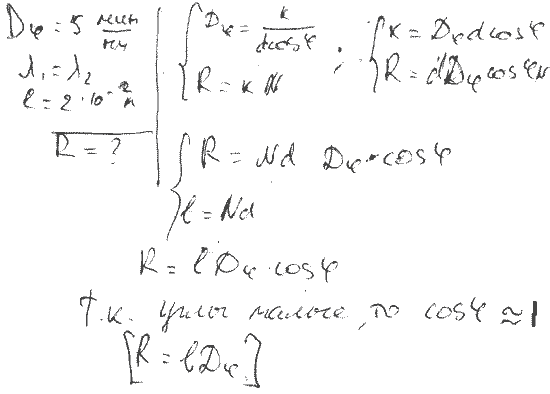 Dφ = 5 мин/нм
λ₁ = λ₂
l = 2·10⁻² м
R = ?
{ Dφ = k/(d cosφ) ; { k = Dφ d cosφ
{ R = kN { R = d Dφ cosφ N
{ R = Nd Dφ · cosφ
{ l = Nd
R = l Dφ · cosφ
т.к. углы малые, то cosφ ≃ 1
[R = l Dφ]